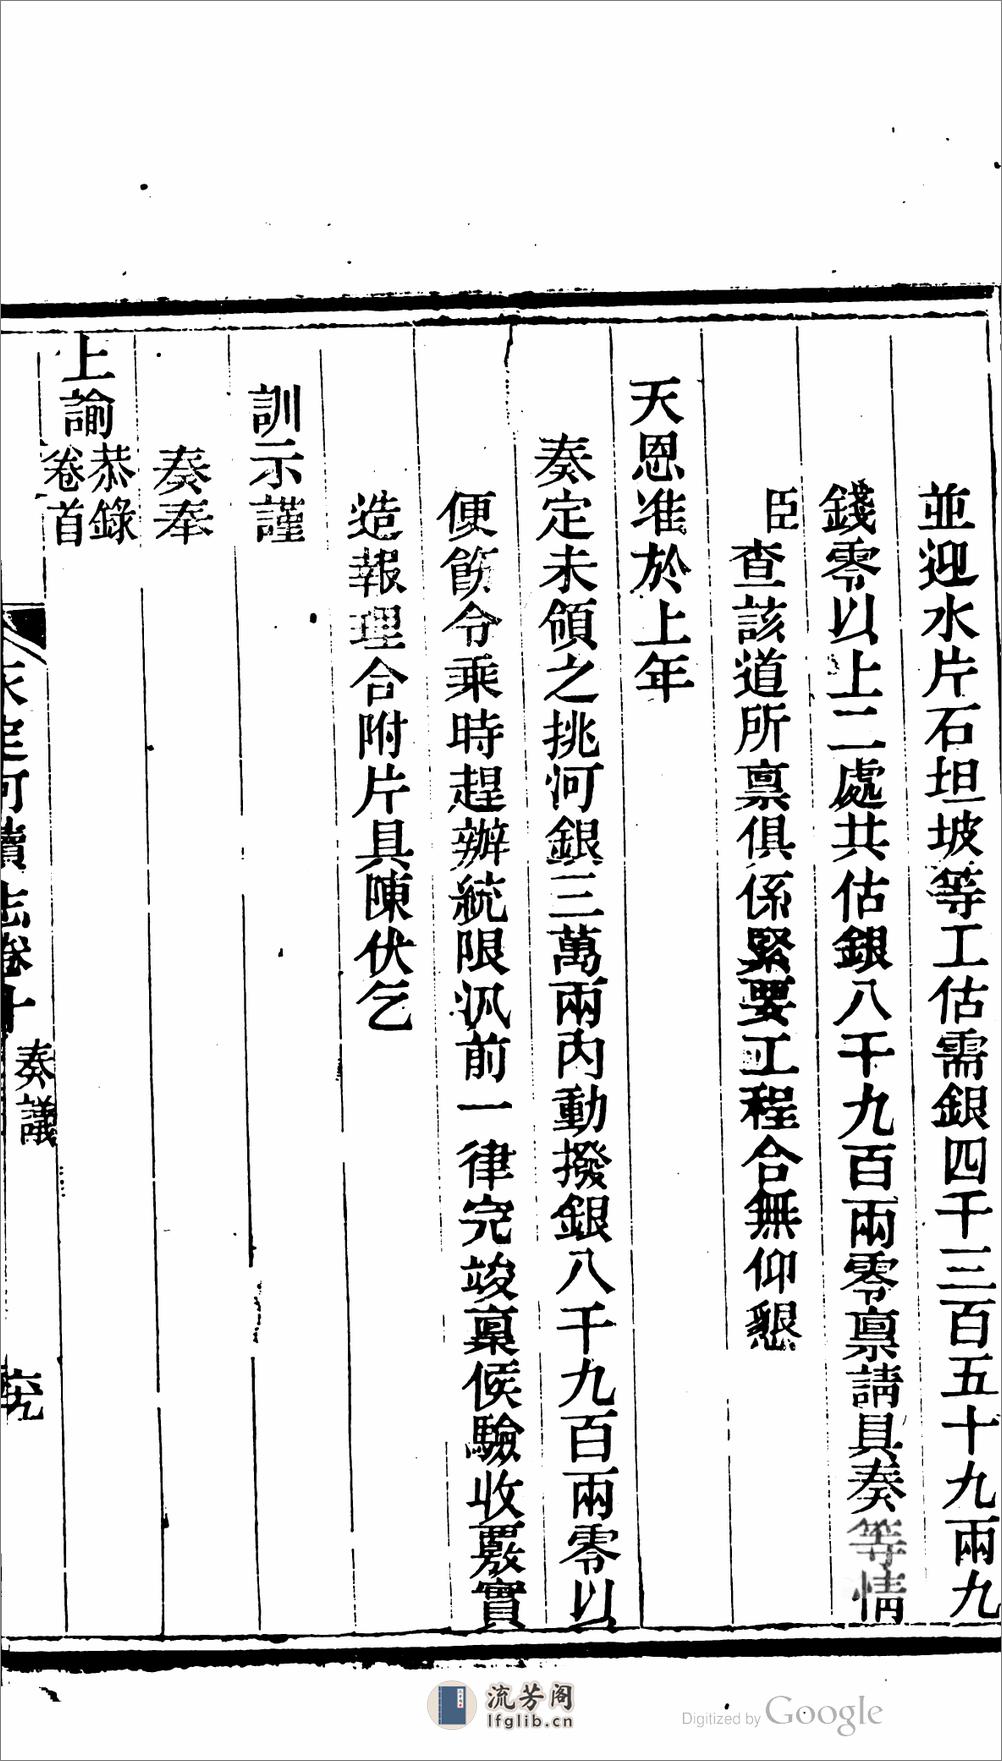 並迎水片石坦坡等工估需銀四千三百五十九兩九
錢零以上二處共估銀八千九百兩零禀請具奏等情
臣查該道所禀俱係緊要工程合無仰懇
天恩准於上年
奏定未領之挑河銀三萬兩內動撥銀八千九百兩零以
便飭令乘時趕辦統限汛前一律完竣禀候驗收覈實
造報理合附片具陳伏乞
訓示謹
奏奉
上諭恭錄卷首
永定河續志卷十 奏議
流芳阁
lfglib.cn
Digitized by Google